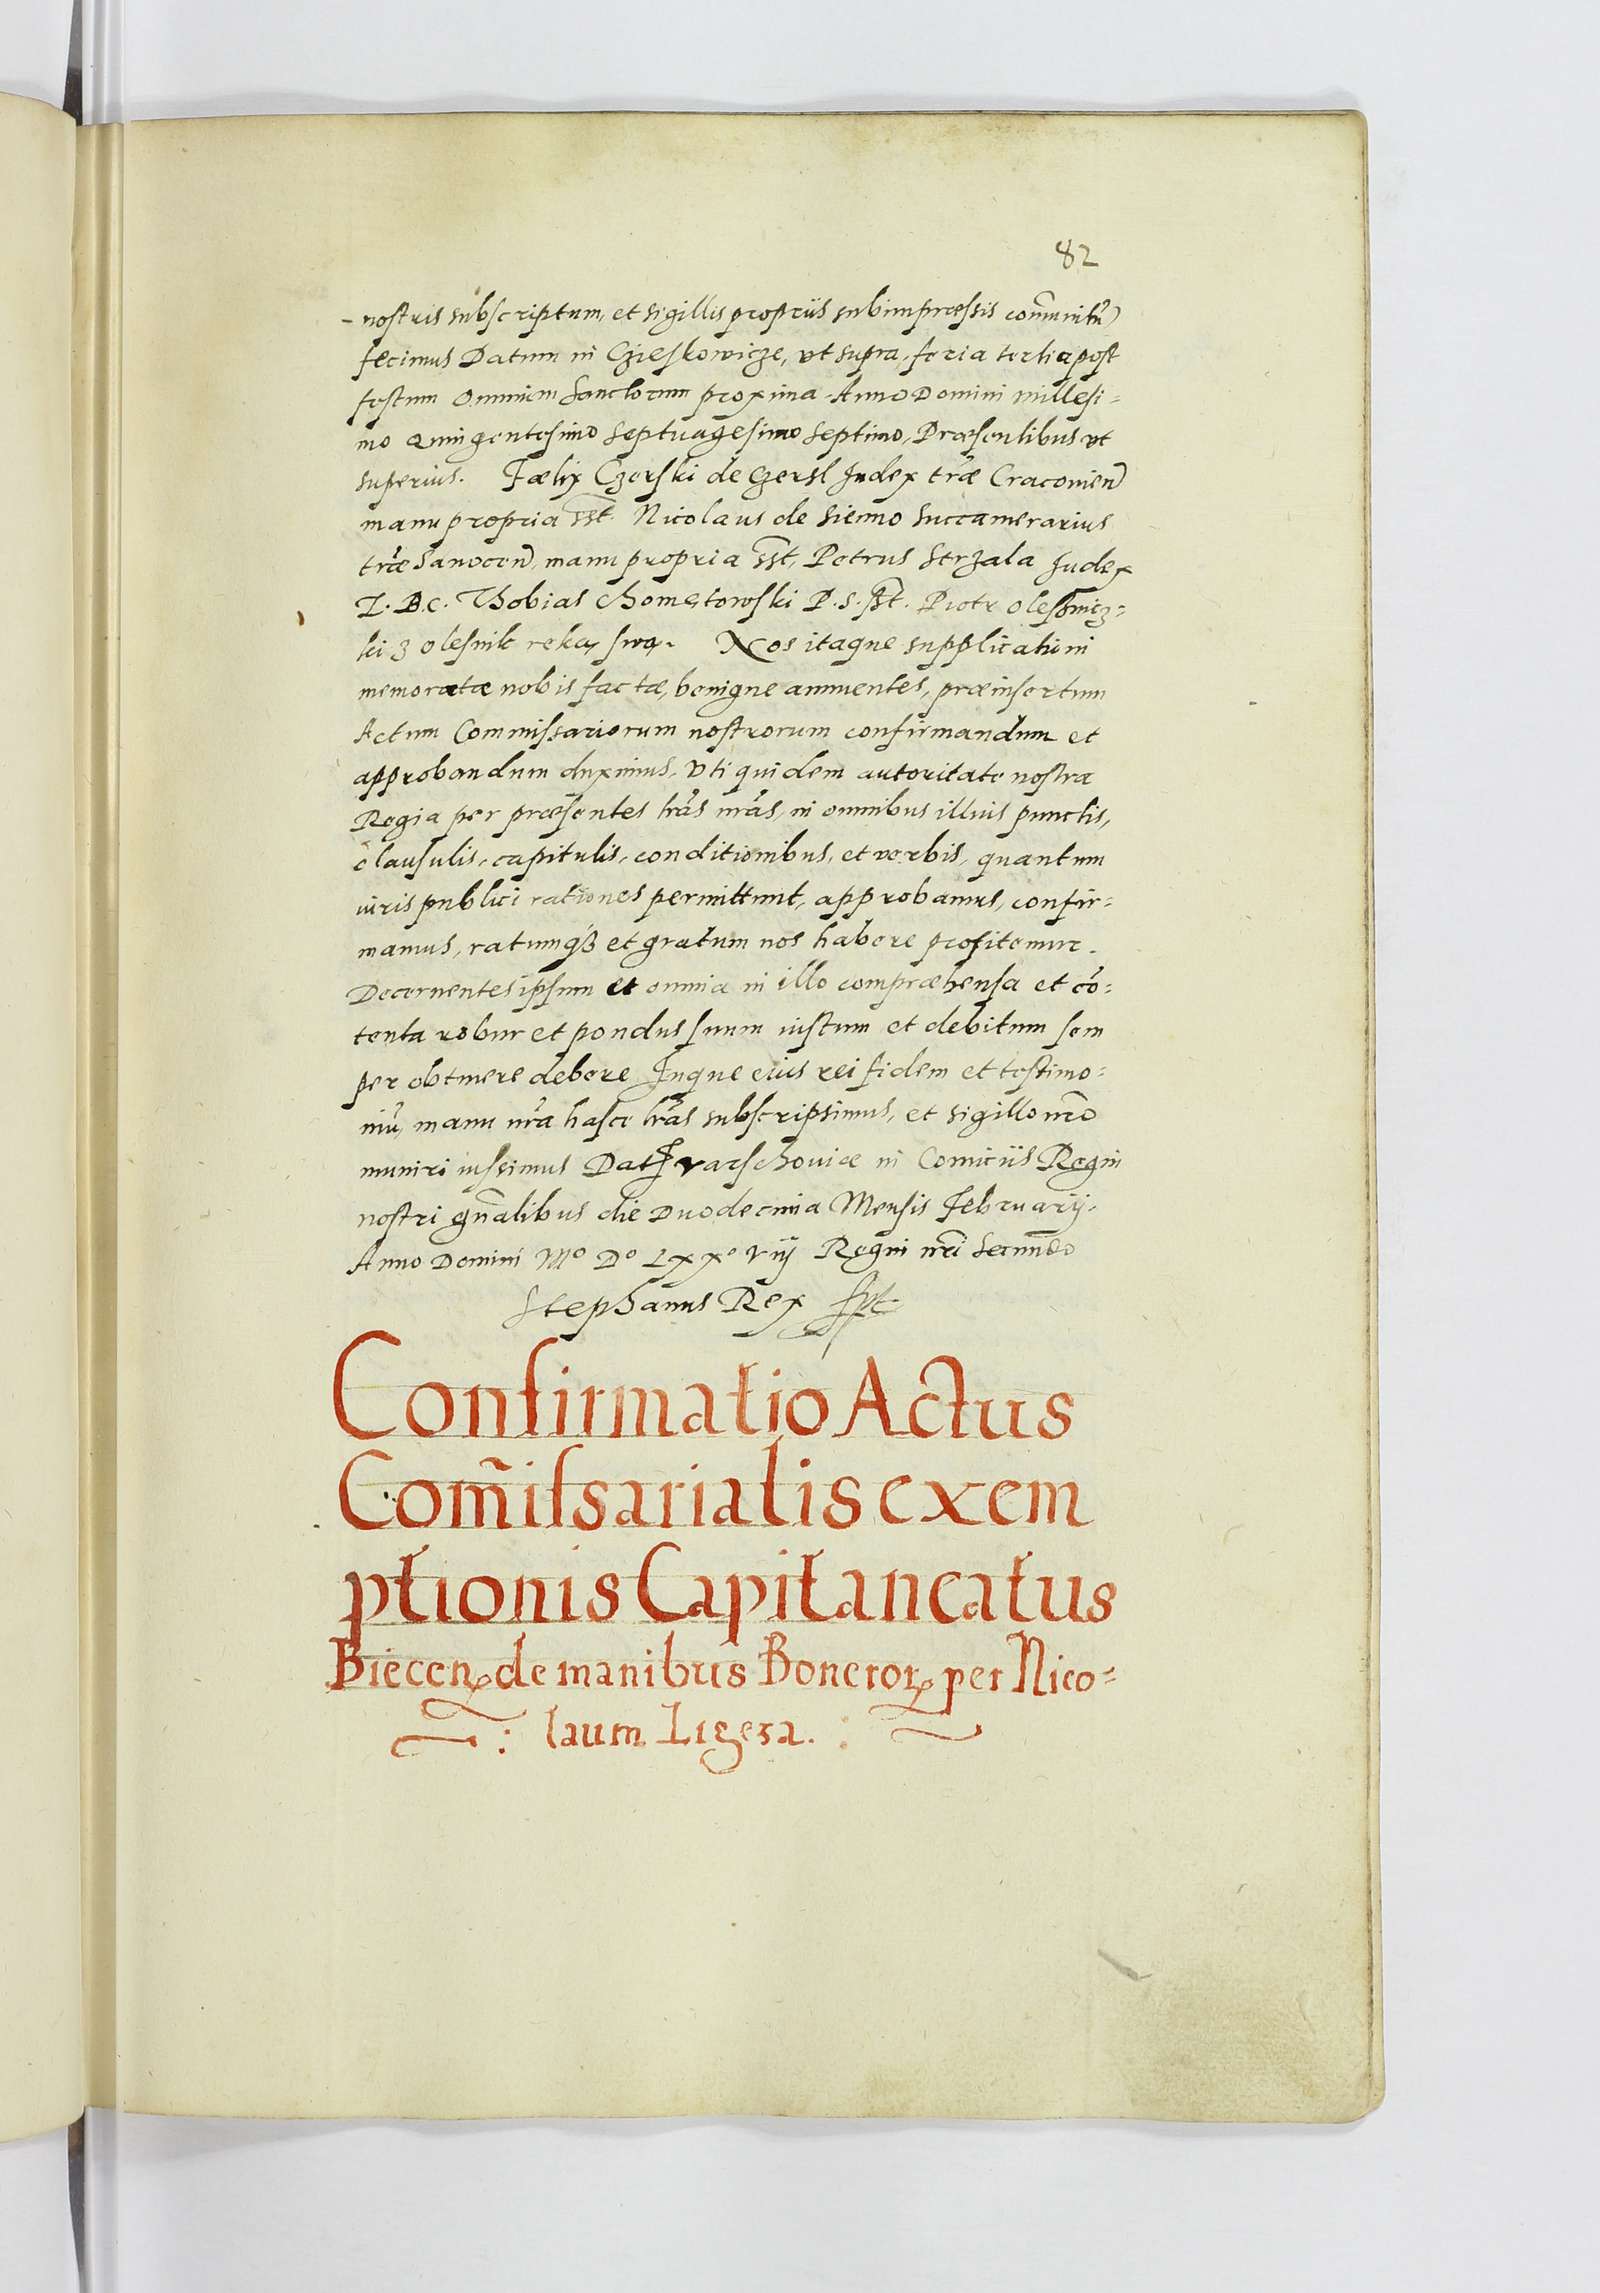 82
nostris subscriptum, et sigillis propriis subimpræssis com̄unitũ
fecimus Datum in Czieskowicze, vt supra, feria tertia post
festum Omnium Sanctorum proxima Anno Domini millesi=
mo Quingentesimo Septuagesimo Septimo, Præsentibus vt
superius. Fælix Czerski de Czersl Judex tr̃æ Cracovien̄
manu propria sst. Nicolaus de Sienno Succamerarius
tr̃æ Sanocen̄, manu propria sst, Petrus Strzala Judex
T. B. C. Thobias Chometowski P. S. sst. Piotr Olessnicz=
ki z Olesnik reką swą. Nos itaque supplicationi
memoratæ nobis factæ, benigne annuentes, præinsertum
Actum Commissariorum nostrorum confirmandum et
approbandum duximus, Vti quidem autoritate nostra
Regia per præsentes lr̃as nr̃as, in omnibus illius punctis,
clausulis, capitulis, conditionibus, et verbis, quantum
iuris publici rationes permittunt, approbamus, confir=
mamus, ratumq́ꝫ et gratum nos habere profitemur.
Decernentes ipsum et omnia in illo compræhensa et cõ=
tenta robur et pondus suum iustum et debitum sem
per obtinere debere Inque eius rei fidem et testimo=
niũ, manu nr̃a hasce lr̃as subscripsimus, et sigillo nr̃o
muniri iussimus Dat Varschoviæ in Comitiis Regni
nostri gñalibus die Duodecima Mensis Februarij.
Anno Domini Mº Dº LXXº Viij Regni nr̃i Secundo
Stephanus Rex sst
Confirmatio Actus
Com̃issarialis exem
ptionis Capitaneatus
Biecen̄ de manibus Boneroꝝ per Nico=
: laum Ligeza. :